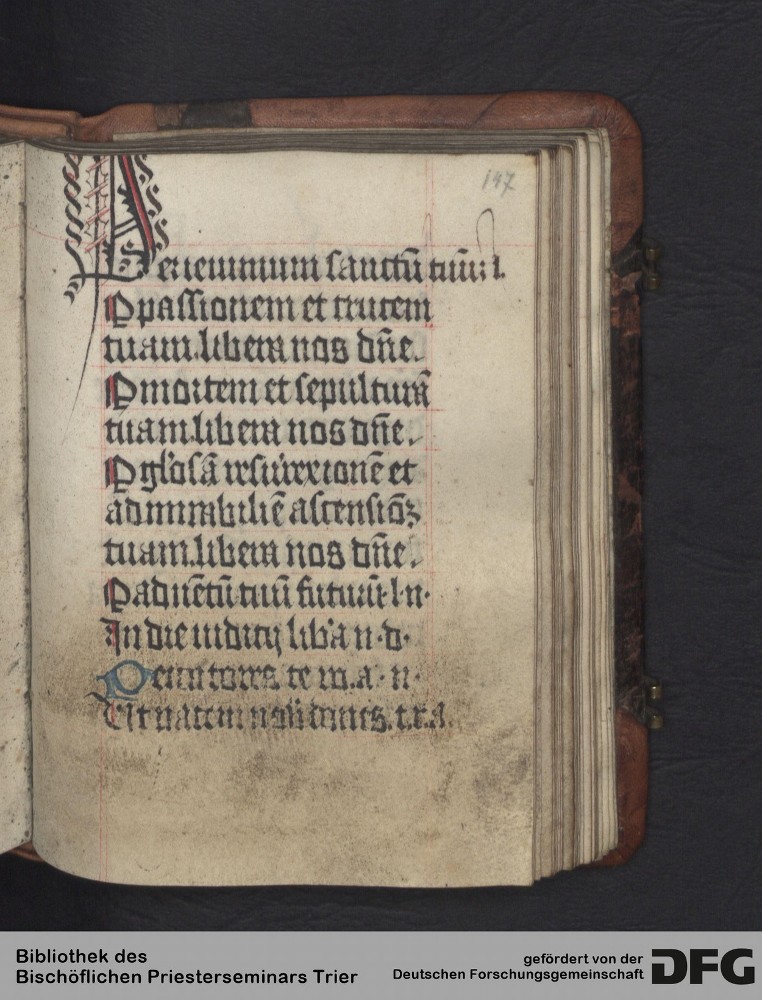 147
Per ieiunium sanctū tuū: l.
P passionem et crucem
tuam. libera nos dn̄e.
P mortem et sepulturā
tuam. libera nos dn̄e.
P glōsā resurrexionē et
admirabilē ascensionꝫ
tuam. libera nos dn̄e.
P aduētū tuū futurū. l. n.
In die iudicij lib'a n. d.
Peccatores. te r. a. n.
Ut pacem nobis dones. t. r. a.
Bibliothek des
Bischöflichen Priesterseminars Trier
gefördert von der
Deutschen Forschungsgemeinschaft
DFG